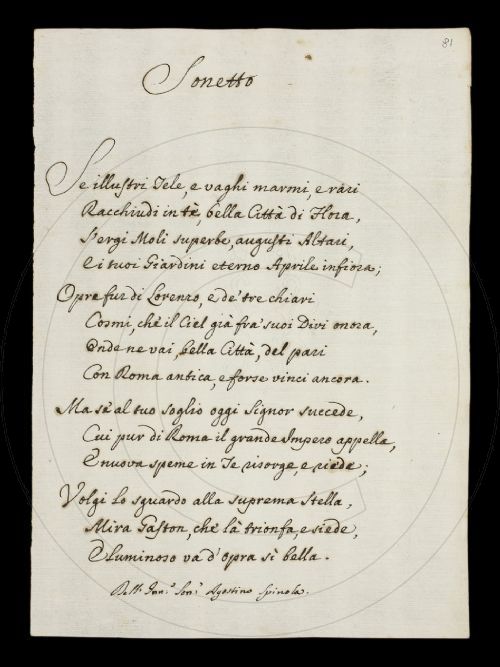 81
Sonetto
Se illustri Tele, e vaghi marmi, e rari
Racchiudi in tè, bella Città di Flora,
S'ergi Moli superbe, augusti Altari,
E i tuoi Giardini eterno Aprile infiora;
Opre fur di Lorenzo, e de' tre chiari
Cosmi, che il Ciel già frà suoi Divi onora,
Onde ne vai, bella Città, del pari
Con Roma antica, e forse vinci ancora.
Ma sè al tuo soglio oggi Signor succede,
Cui pur di Roma il grande Impero appella,
E nuova speme in Te risorge, e riede;
Volgi lo sguardo alla suprema Stella,
Mira Gaston, che là trionfa, e siede,
E luminoso va d'opra sì bella.
Agostino Spinola.